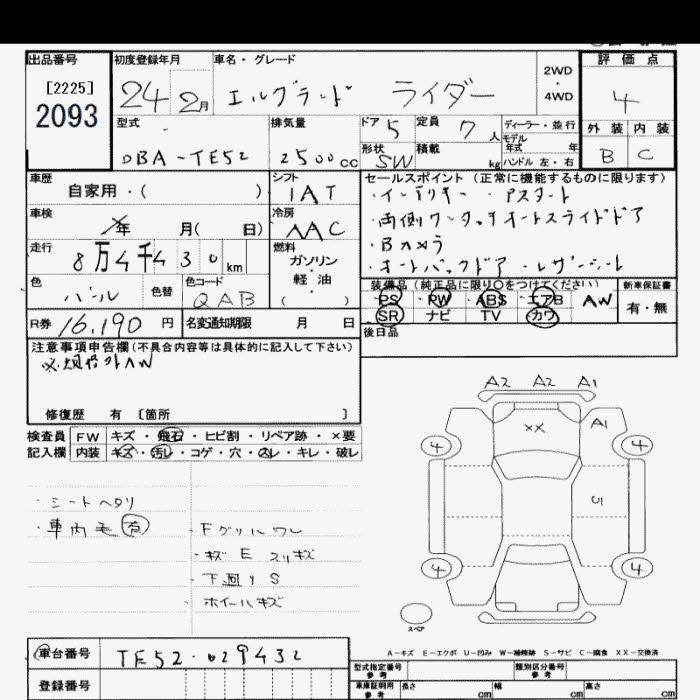 出品番号
[2225]
2093
初度登録年月
24 2月
車名・グレード
エルグランド ライダー
2WD
・
4WD
評価点
4
外装 内装
B C
型式
DBA-TE52
排気量
2500cc
ドア 5
定員 7人
形状 SW
積載 kg
ディーラー・並行
モデル年式 年
ハンドル 左・右
車歴
自家用・( )
シフト
IAT
車検
年 月( 日)
冷房
AAC
走行
8万4千430km
燃料
ガソリン
・
軽油
( )
色
パール
色替
色コード
QAB
R券 16,190円
名変通知期限 月 日
セールスポイント(正常に機能するものに限ります)
・インテリキー ・Pスタート
・両側ワンタッチオートスライドドア
・Bカメラ
・オートバックドア ・レザーシート
装備品(純正品に限り○をつけてください)
PS PW ABS エアB AW
SR ナビ TV カワ
新車保証書
有・無
後日品
注意事項申告欄(不具合内容等は具体的に記入して下さい)
修復歴 有 〔箇所 〕
検査員
記入欄
FW キズ・飛石・ヒビ割・リペア跡・×要
内装 キズ・汚レ・コゲ・穴・スレ・キレ・破レ
・シートヘタリ
・車内毛 有
・Fグリルワレ
・キズ E スリキズ
・下廻りS
・ホイールキズ
A2 A2 A1
XX
A1
4 4
U1
4 4
スペア
A-キズ E-エクボ U-凹み W-補修跡 S-サビ C-腐食 XX-交換済
車台番号
TE52-029432
登録番号
型式指定番号
参考
類別区分番号
参考
車庫証明用
参考
長さ cm
幅 cm
高さ cm